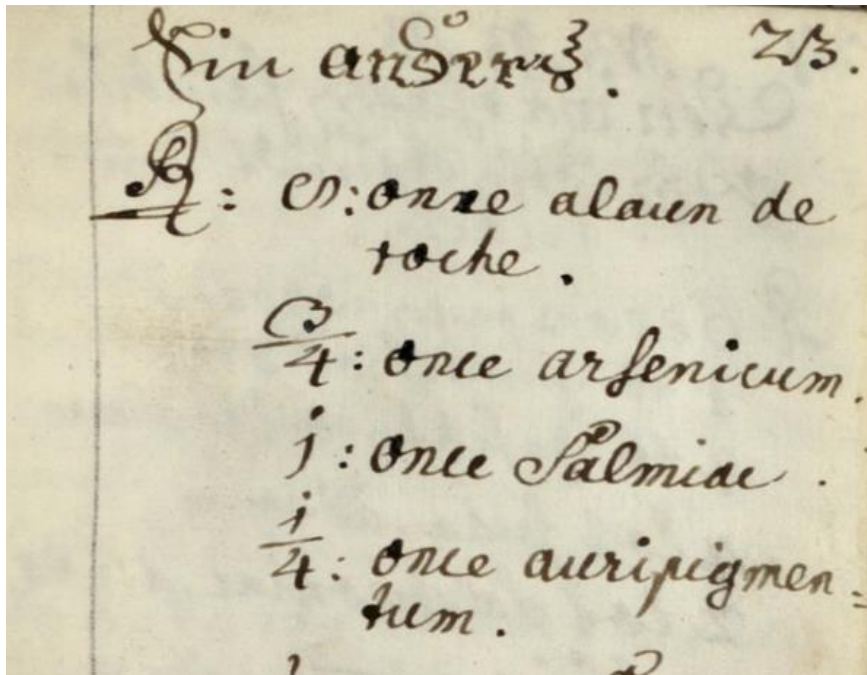 Ein anders. 23.
℞: onze alaun de
roche.
3/4: once arsenicum.
j: once Salmiac.
j/4: once auripigmen=
tum.